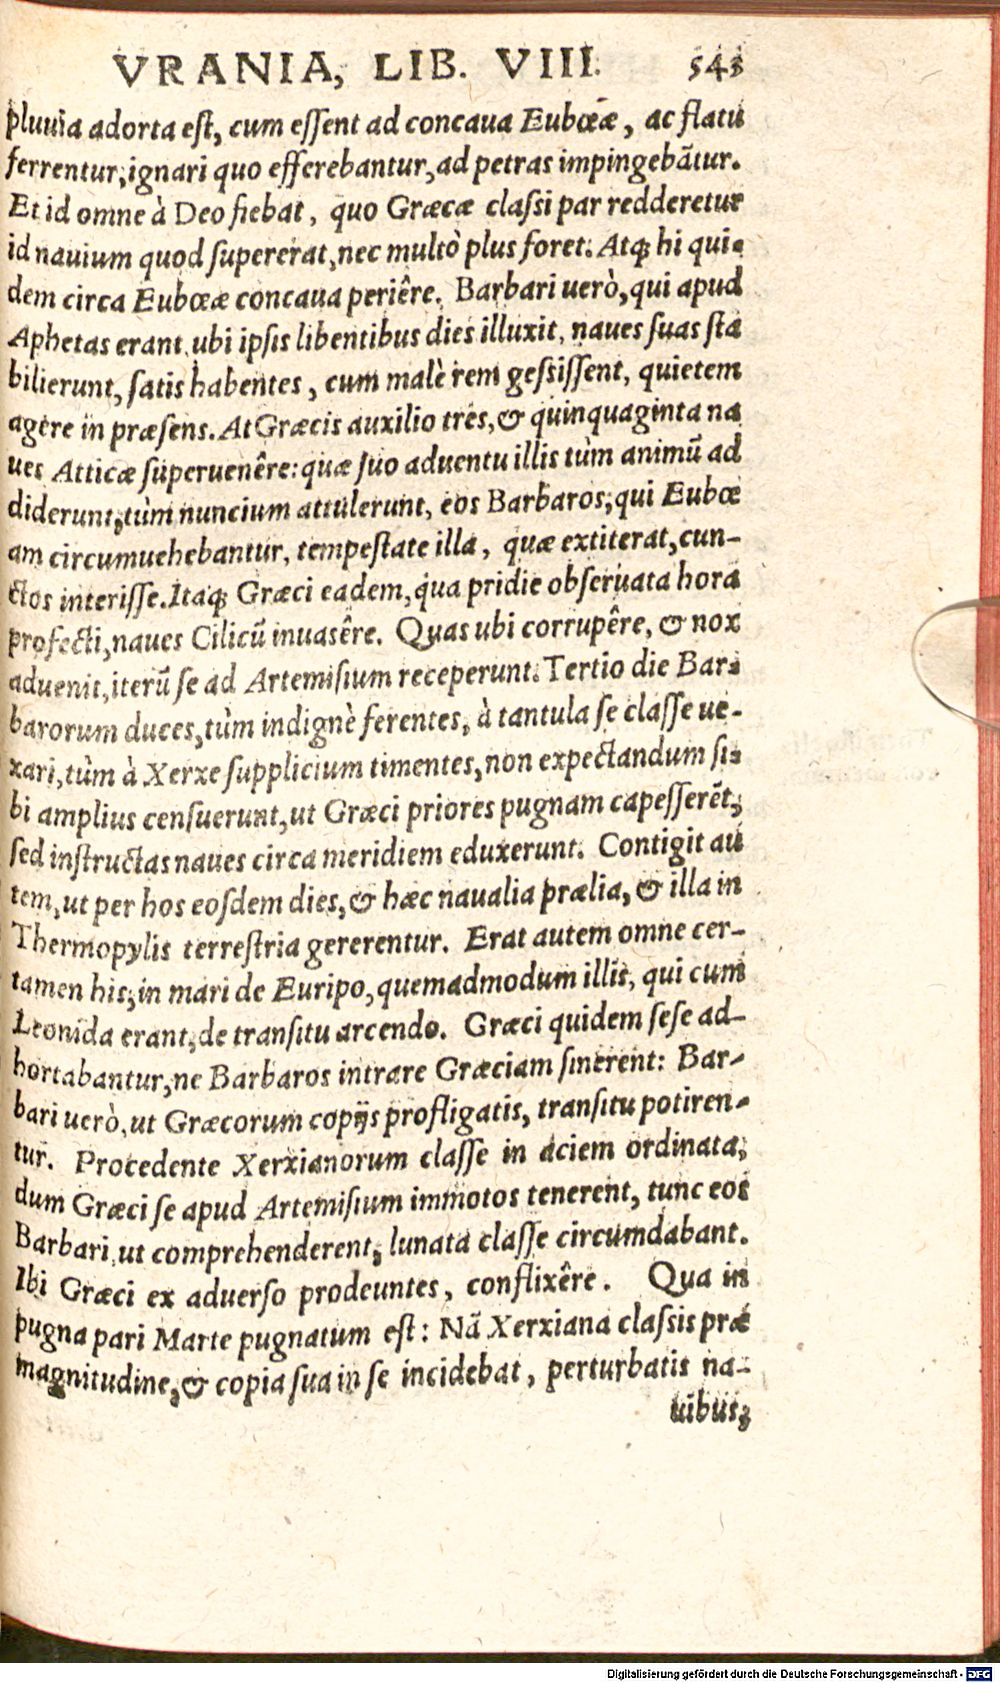 VRANIA, LIB. VIII. 543
pluuia adorta est, cum essent ad concaua Eubœæ, ac flatu
ferrentur, ignari quo efferebantur, ad petras impingebãtur.
Et id omne à Deo fiebat, quo Græcæ classi par redderetur
id nauium quod supererat, nec multò plus foret. Atq; hi qui-
dem circa Eubœæ concaua periêre. Barbari uerò, qui apud
Aphetas erant, ubi ipsis libentibus dies illuxit, naues suas sta
bilierunt, satis habentes, cum malè rem gessissent, quietem
agere in præsens. At Græcis auxilio tres, & quinquaginta na
ues Atticæ superuenêre: quæ suo aduentu illis tùm animũ ad
diderunt, tùm nuncium attulerunt, eos Barbaros, qui Eubœ
am circumuehebantur, tempestate illa, quæ extiterat, cun-
ctos interisse. Itaq; Græci eadem, qua pridie obseruata hora
profecti, naues Cilicũ inuasêre. Quas ubi corrupêre, & nox
aduenit, iterũ se ad Artemisium receperunt. Tertio die Bar-
barorum duces, tùm indignè ferentes, à tantula se classe ue-
xari, tùm à Xerxe supplicium timentes, non expectandum si-
bi amplius censuerunt, ut Græci priores pugnam capesserẽt;
sed instructas naues circa meridiem eduxerunt. Contigit au
tem, ut per hos eosdem dies, & hæc naualia prælia, & illa in
Thermopylis terrestria gererentur. Erat autem omne cer-
tamen his, in mari de Euripo, quemadmodum illis, qui cum
Leonida erant, de transitu arcendo. Græci quidem sese ad-
hortabantur, ne Barbaros intrare Græciam sinerent: Bar-
bari uerò, ut Græcorum copijs profligatis, transitu potiren-
tur. Procedente Xerxianorum classe in aciem ordinata,
dum Græci se apud Artemisium immotos tenerent, tunc eos
Barbari, ut comprehenderent, lunata classe circumdabant.
Ibi Græci ex aduerso prodeuntes, conflixêre. Qua in
pugna pari Marte pugnatum est: Nã Xerxiana classis præ
magnitudine, & copia sua in se incidebat, perturbatis na-
uibus,
Digitalisierung gefördert durch die Deutsche Forschungsgemeinschaft - DFG